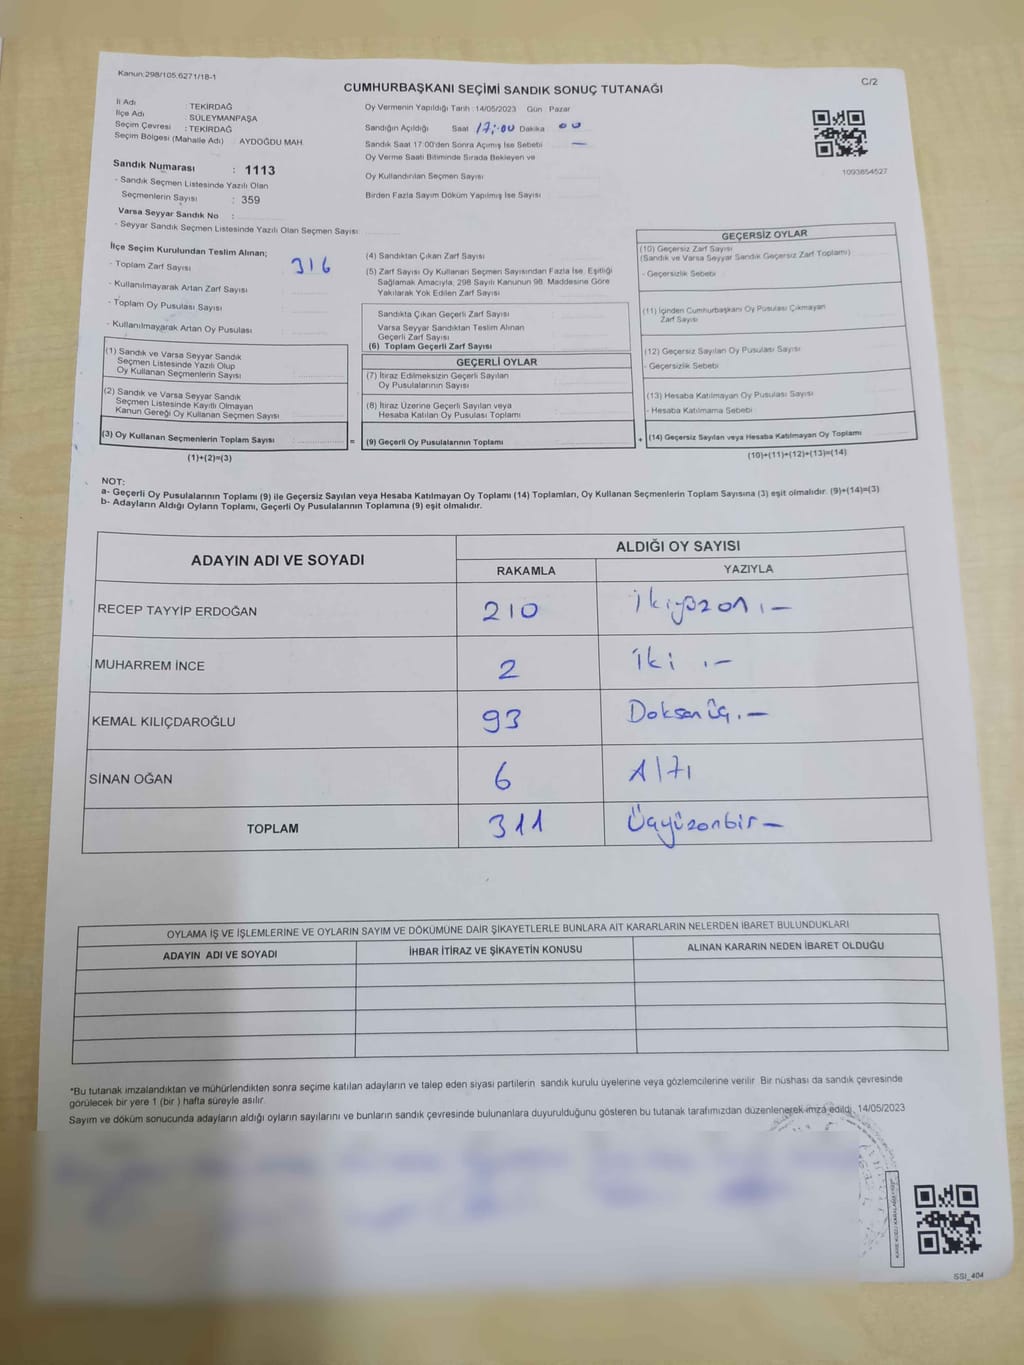 Kanun:298/105.6271/18-1
C/2
CUMHURBAŞKANI SEÇİMİ SANDIK SONUÇ TUTANAĞI
İl Adı : TEKİRDAĞ
İlçe Adı : SÜLEYMANPAŞA
Seçim Çevresi : TEKİRDAĞ
Seçim Bölgesi (Mahalle Adı) : AYDOĞDU MAH.
Sandık Numarası : 1113
- Sandık Seçmen Listesinde Yazılı Olan
Seçmenlerin Sayısı : 359
Varsa Seyyar Sandık No :
- Seyyar Sandık Seçmen Listesinde Yazılı Olan Seçmen Sayısı:
Oy Vermenin Yapıldığı Tarih : 14/05/2023 Gün : Pazar
Sandığın Açıldığı Saat 17:00 Dakika 00
Sandık Saat 17:00'den Sonra Açımış İse Sebebi —
Oy Verme Saati Bitiminde Sırada Bekleyen ve
Oy Kullandırılan Seçmen Sayısı
Birden Fazla Sayım Döküm Yapılmış İse Sayısı
1093854527
İlçe Seçim Kurulundan Teslim Alınan;
- Toplam Zarf Sayısı 316
- Kullanılmayarak Artan Zarf Sayısı
- Toplam Oy Pusulası Sayısı
- Kullanılmayarak Artan Oy Pusulası
(1) Sandık ve Varsa Seyyar Sandık
Seçmen Listesinde Yazılı Olup
Oy Kullanan Seçmenlerin Sayısı
(2) Sandık ve Varsa Seyyar Sandık
Seçmen Listesinde Kayıtlı Olmayan
Kanun Gereği Oy Kullanan Seçmen Sayısı
(3) Oy Kullanan Seçmenlerin Toplam Sayısı :
(1)+(2)=(3)
(4) Sandıktan Çıkan Zarf Sayısı
(5) Zarf Sayısı Oy Kullanan Seçmen Sayısından Fazla İse, Eşitliği
Sağlamak Amacıyla, 298 Sayılı Kanunun 98. Maddesine Göre
Yakılarak Yok Edilen Zarf Sayısı
Sandıkta Çıkan Geçerli Zarf Sayısı
Varsa Seyyar Sandıktan Teslim Alınan
Geçerli Zarf Sayısı
(6) Toplam Geçerli Zarf Sayısı
GEÇERLİ OYLAR
(7) İtiraz Edilmeksizin Geçerli Sayılan
Oy Pusulalarının Sayısı
(8) İtiraz Üzerine Geçerli Sayılan veya
Hesaba Katılan Oy Pusulası Toplamı
= (9) Geçerli Oy Pusulalarının Toplamı
GEÇERSİZ OYLAR
(10) Geçersiz Zarf Sayısı
(Sandık ve Varsa Seyyar Sandık Geçersiz Zarf Toplamı)
- Geçersizlik Sebebi
(11) İçinden Cumhurbaşkanı Oy Pusulası Çıkmayan
Zarf Sayısı
(12) Geçersiz Sayılan Oy Pusulası Sayısı
- Geçersizlik Sebebi
(13) Hesaba Katılmayan Oy Pusulası Sayısı
- Hesaba Katılmama Sebebi
+ (14) Geçersiz Sayılan veya Hesaba Katılmayan Oy Toplamı
(10)+(11)+(12)+(13)=(14)
NOT:
a- Geçerli Oy Pusulalarının Toplamı (9) ile Geçersiz Sayılan veya Hesaba Katılmayan Oy Toplamı (14) Toplamları, Oy Kullanan Seçmenlerin Toplam Sayısına (3) eşit olmalıdır. (9)+(14)=(3)
b- Adayların Aldığı Oyların Toplamı, Geçerli Oy Pusulalarının Toplamına (9) eşit olmalıdır.
ADAYIN ADI VE SOYADI
ALDIĞI OY SAYISI
RAKAMLA YAZIYLA
RECEP TAYYİP ERDOĞAN 210 İkiyüzon.—
MUHARREM İNCE 2 İki.—
KEMAL KILIÇDAROĞLU 93 Doksanüç.—
SİNAN OĞAN 6 Altı
TOPLAM 311 Üçyüzonbir—
OYLAMA İŞ VE İŞLEMLERİNE VE OYLARIN SAYIM VE DÖKÜMÜNE DAİR ŞİKAYETLERLE BUNLARA AİT KARARLARIN NELERDEN İBARET BULUNDUKLARI
ADAYIN ADI VE SOYADI İHBAR İTİRAZ VE ŞİKAYETİN KONUSU ALINAN KARARIN NEDEN İBARET OLDUĞU
*Bu tutanak imzalandıktan ve mühürlendikten sonra seçime katılan adayların ve talep eden siyasi partilerin sandık kurulu üyelerine veya gözlemcilerine verilir. Bir nüshası da sandık çevresinde
görülecek bir yere 1 (bir ) hafta süreyle asılır.
Sayım ve döküm sonucunda adayların aldığı oyların sayılarını ve bunların sandık çevresinde bulunanlara duyurulduğunu gösteren bu tutanak tarafımızdan düzenlenerek imza edildi. 14/05/2023
SSI_404